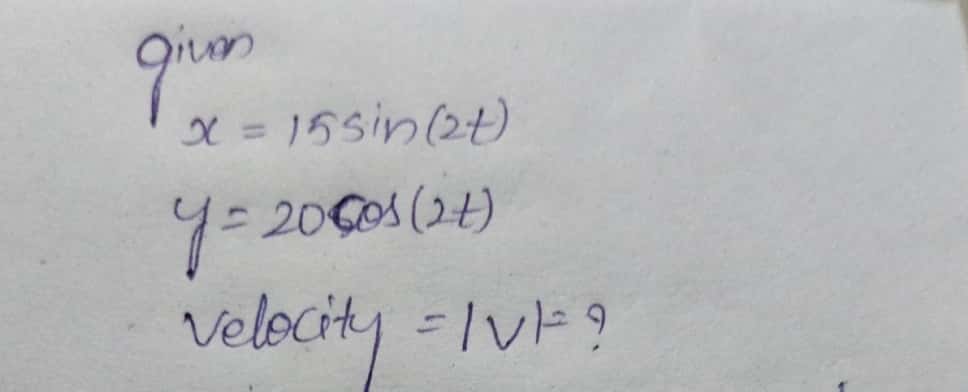 given
x = 15 sin(2t)
y = 20 cos(2t)
velocity = |v| = ?